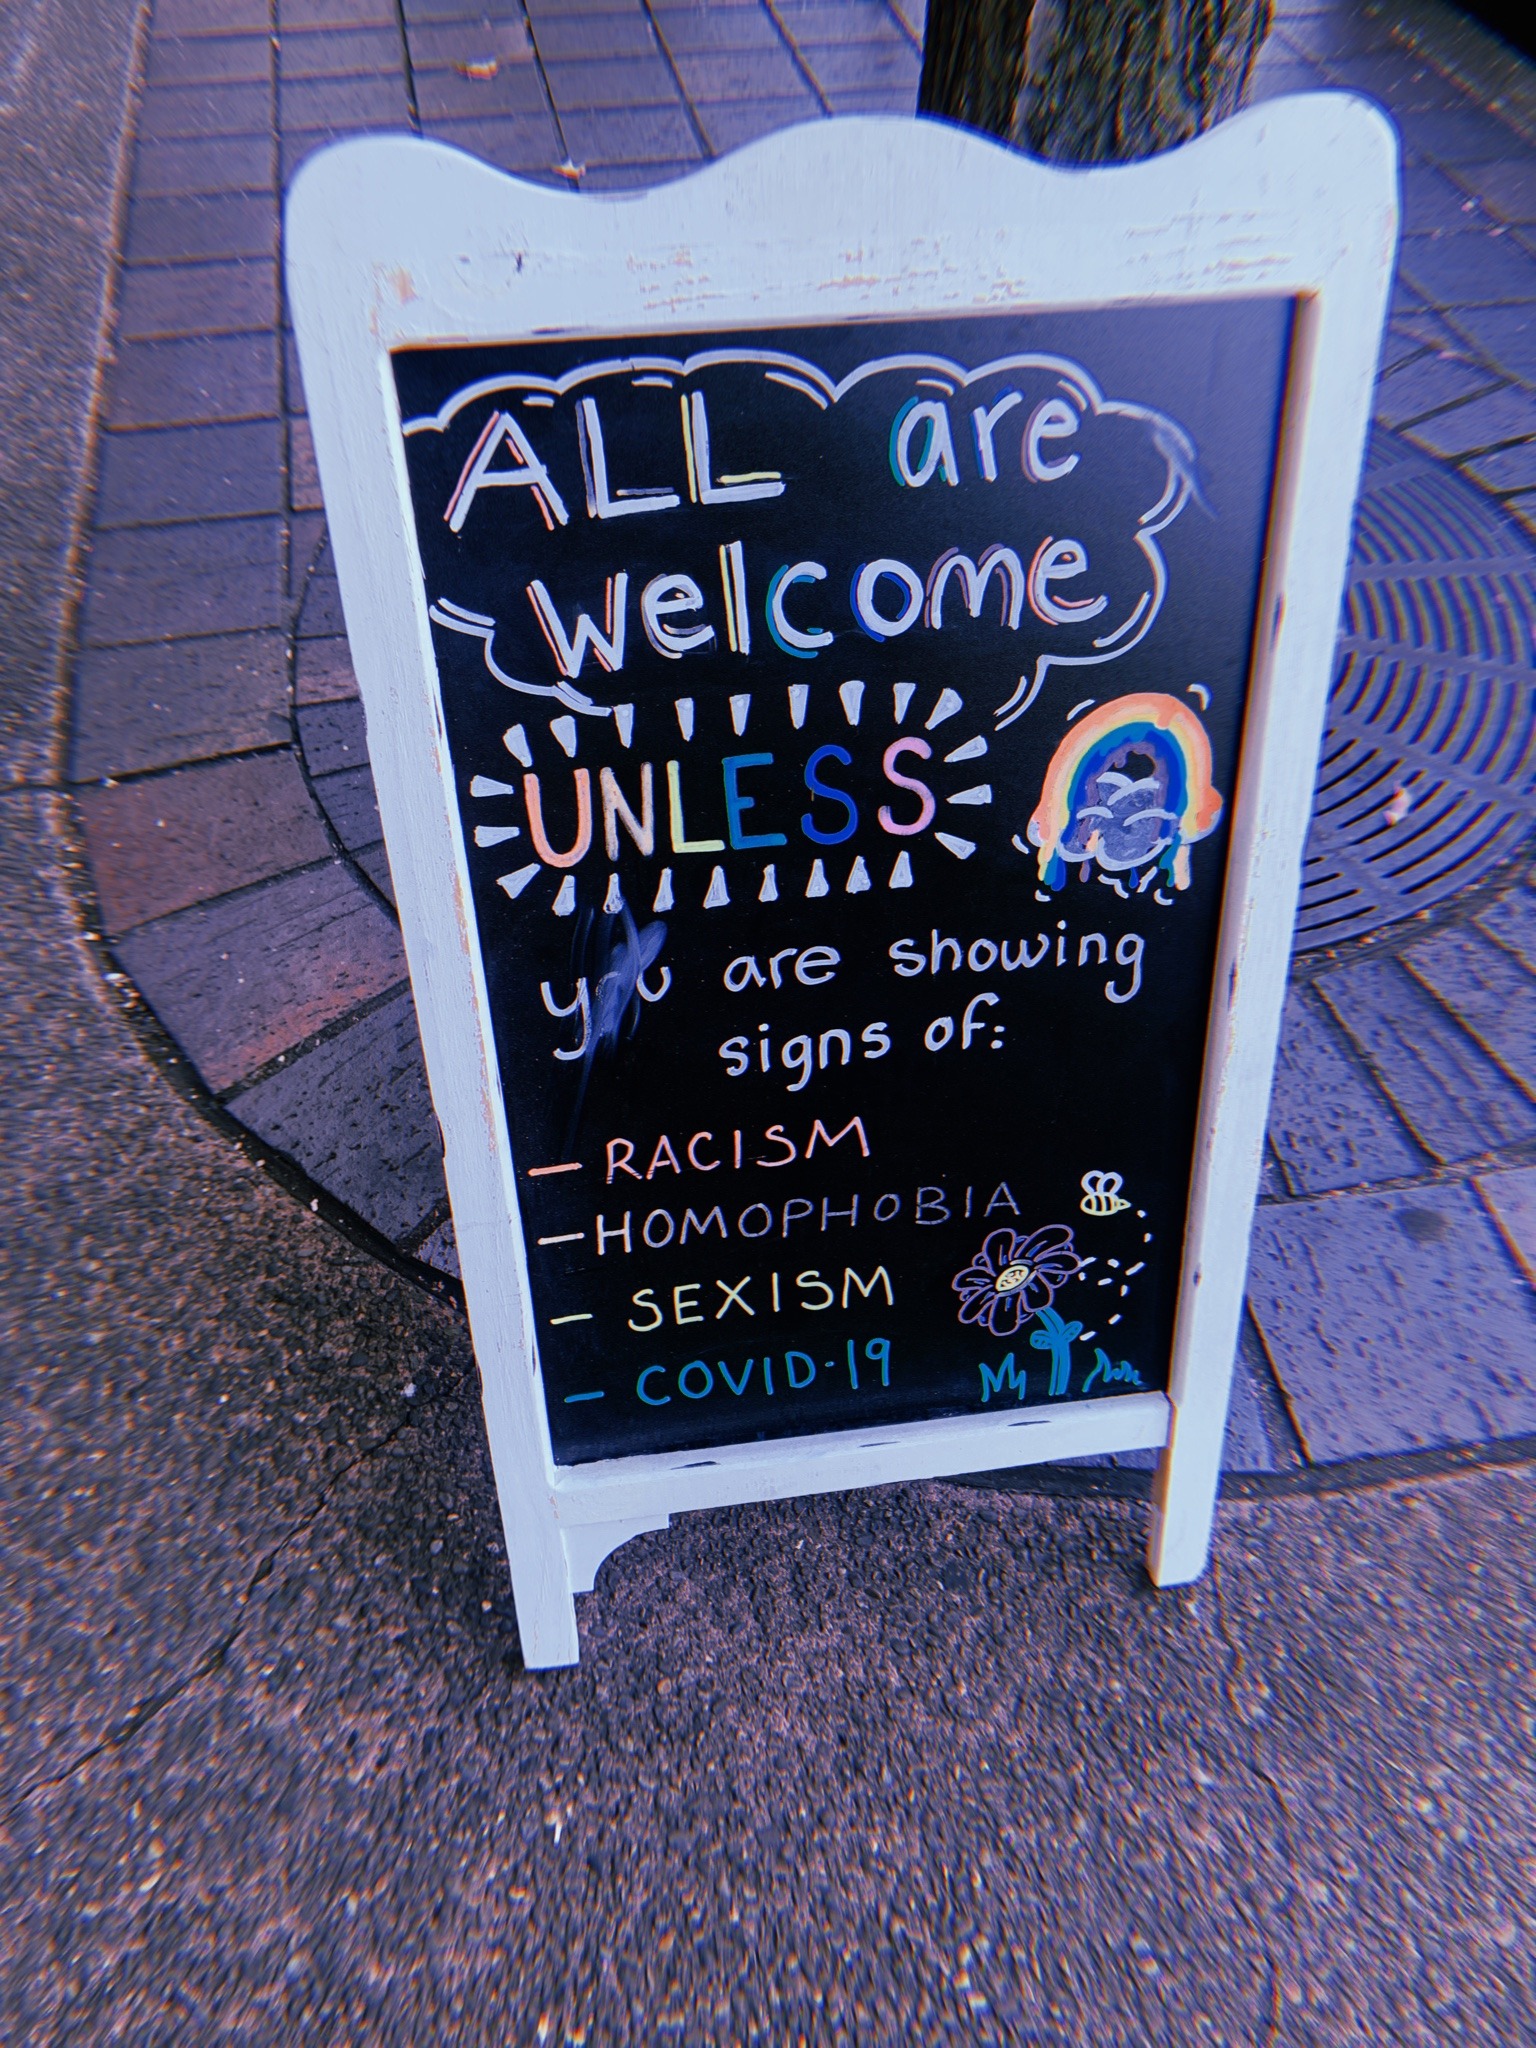 ALL are
welcome
UNLESS
you are showing
signs of:
- RACISM
- HOMOPHOBIA
- SEXISM
- COVID-19